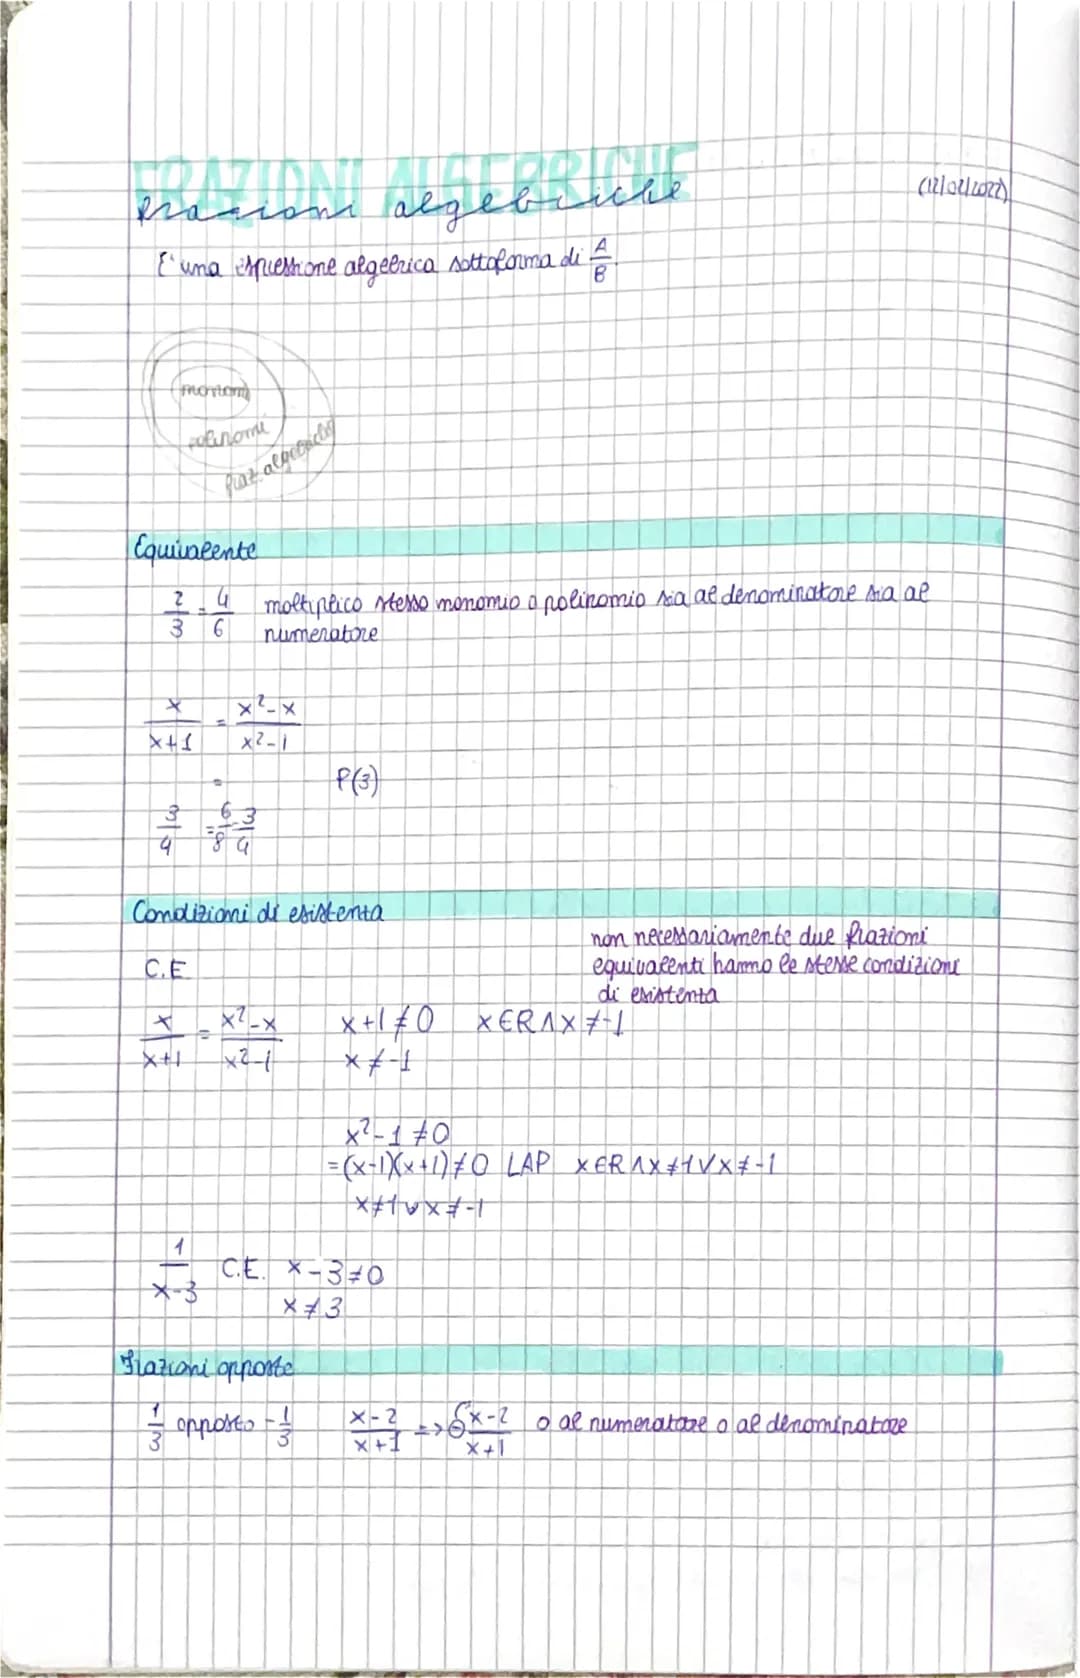 FRAZIONI ALGEBRICHE
Frazioni algebriche
(12/02/2022)
E' una espressione algebrica sottoforma di A/B.
monomi
polinomi
fraz. algebriche
Equivalente
2/3 = 4/6 moltiplico stesso monomio o polinomio sia al denominatore sia al
numeratore
x/(x+1) = (x²-x)/(x²-1)
= P(3)
3/4 = 6/8 = 3/4
Condizioni di esistenza
non necessariamente due frazioni
equivalenti hanno le stesse condizioni
di esistenza
C.E
x/(x+1) = (x²-x)/(x²-1) x+1≠0 x∈R∧x≠-1
x≠-1
x²-1≠0
=(x-1)(x+1)≠0 LAP x∈R∧x≠1∨x≠-1
x≠1∨x≠-1
1/(x-3) C.E. x-3≠0
x≠3
Frazioni opposte
1/3 opposto -1/3 (x-2)/(x+1) => -(x-2)/(x+1) o al numeratore o al denominatore